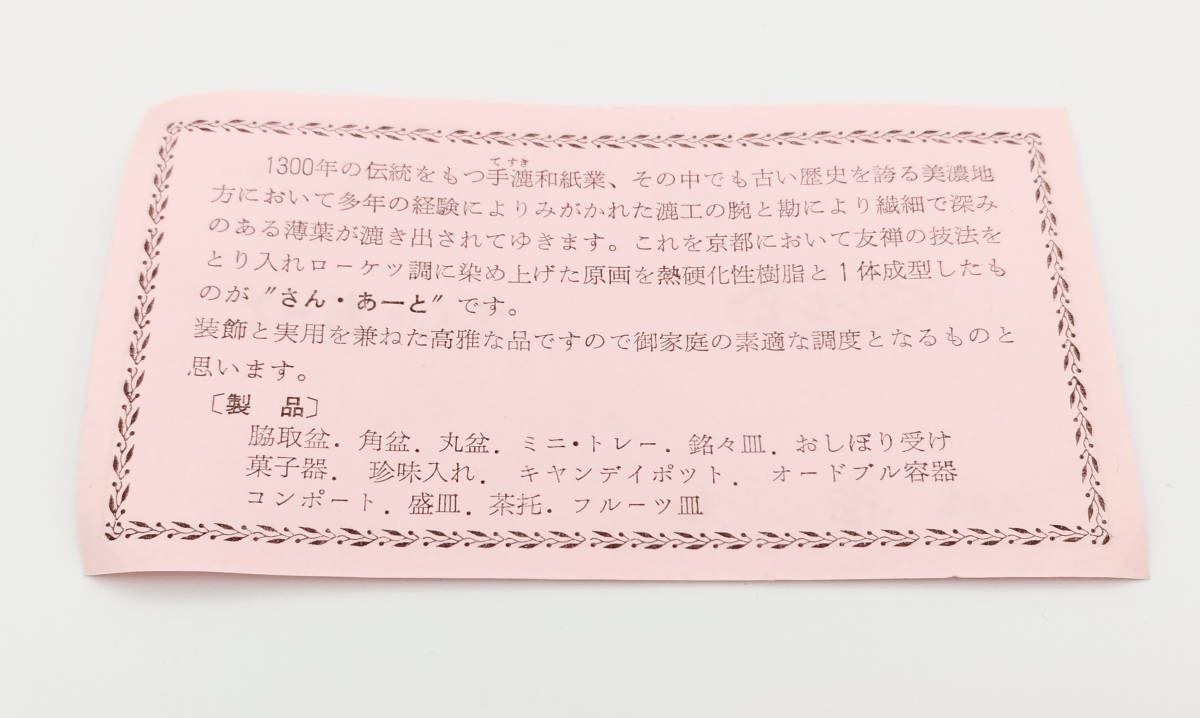 1300年の伝統をもつ手漉和紙業、その中でも古い歴史を誇る美濃地
てすき
方において多年の経験によりみがかれた漉工の腕と勘により繊細で深み
のある薄葉が漉き出されてゆきます。これを京都において友禅の技法を
とり入れローケツ調に染め上げた原画を熱硬化性樹脂と1体成型したも
のが〃さん・あーと〃です。
装飾と実用を兼ねた高雅な品ですので御家庭の素適な調度となるものと
思います。
〔製 品〕
脇取盆. 角盆. 丸盆. ミニ・トレー. 銘々皿. おしぼり受け
菓子器. 珍味入れ. キヤンデイポツト. オードブル容器
コンポート. 盛皿. 茶托・フルーツ皿